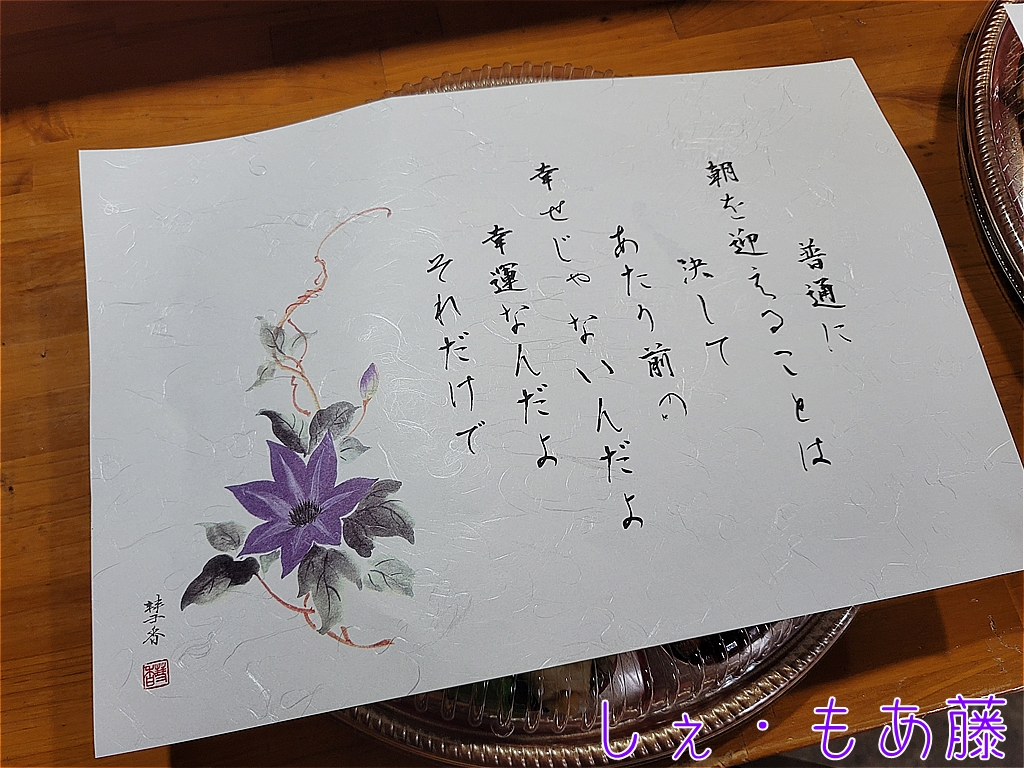 普通に
朝を迎えることは
決して
あたり前の
幸せじゃないんだよ
幸運なんだよ
それだけで
しぇ・もあ藤